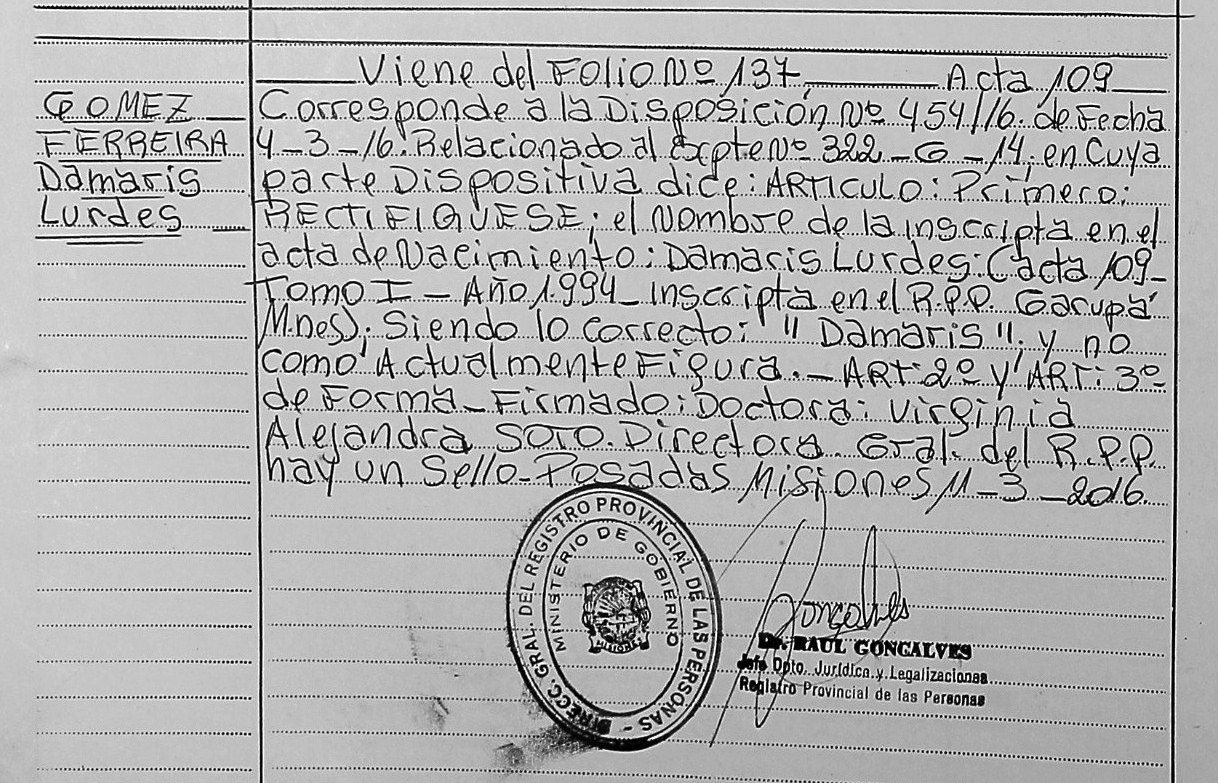 Viene del Folio Nº 137, Acta 109
GOMEZ
FERREIRA
Damaris
Lurdes
Corresponde a la Disposición Nº 454/16. de Fecha
4-3-16. Relacionado al Expte Nº 322-G-14; en Cuya
parte Dispositiva dice: ARTICULO: Primero:
RECTIFIQUESE; el Nombre de la inscripta en el
acta de Nacimiento: Damacis Lurdes: (acta 109-
Tomo I - Año 1.994- Inscripta en el R.P.P. Garupá
M.nes); Siendo lo Correcto: "Damaris"; y no
como Actualmente Figura.- ART: 2º y ART: 3º-
de Forma- Firmado: Doctora: Virginia
Alejandra SOTO. Directora Gral. del R.P.P.
hay un Sello- Posadas Misiones 11-3-2016.
DIRECC. GRAL. DEL REGISTRO PROVINCIAL DE LAS PERSONAS -
MINISTERIO DE GOBIERNO
MISIONES
Goncalves
Dr. RAUL GONCALVES
Jefe Dpto. Jurídica y Legalizaciones
Registro Provincial de las Personas